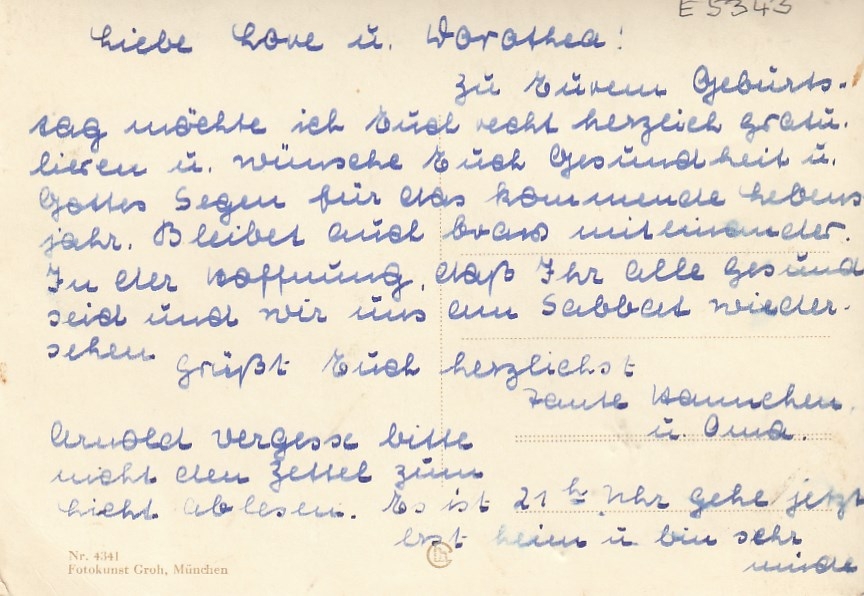 E 5343
Liebe Lore u. Dorothea!
Zu Eurem Geburts-
tag möchte ich Euch recht herzlich gratu.
lieren u. wünsche Euch Gesundheit u.
Gottes Segen für das kommende Lebens
jahr. Bleibet auch brav miteinander.
In der Hoffnung, daß Ihr alle gesund
seid und wir uns am Sabbat wieder.
sehen
grüßt Euch herzlichst
Tante Hannchen
u. Oma.
Arnold vergesse bitte
nicht den Zettel zum
Licht ablesen. Es ist 21 h Uhr gehe jetzt
erst heim u bin sehr
müde
Nr. 4341
Fotokunst Groh, München